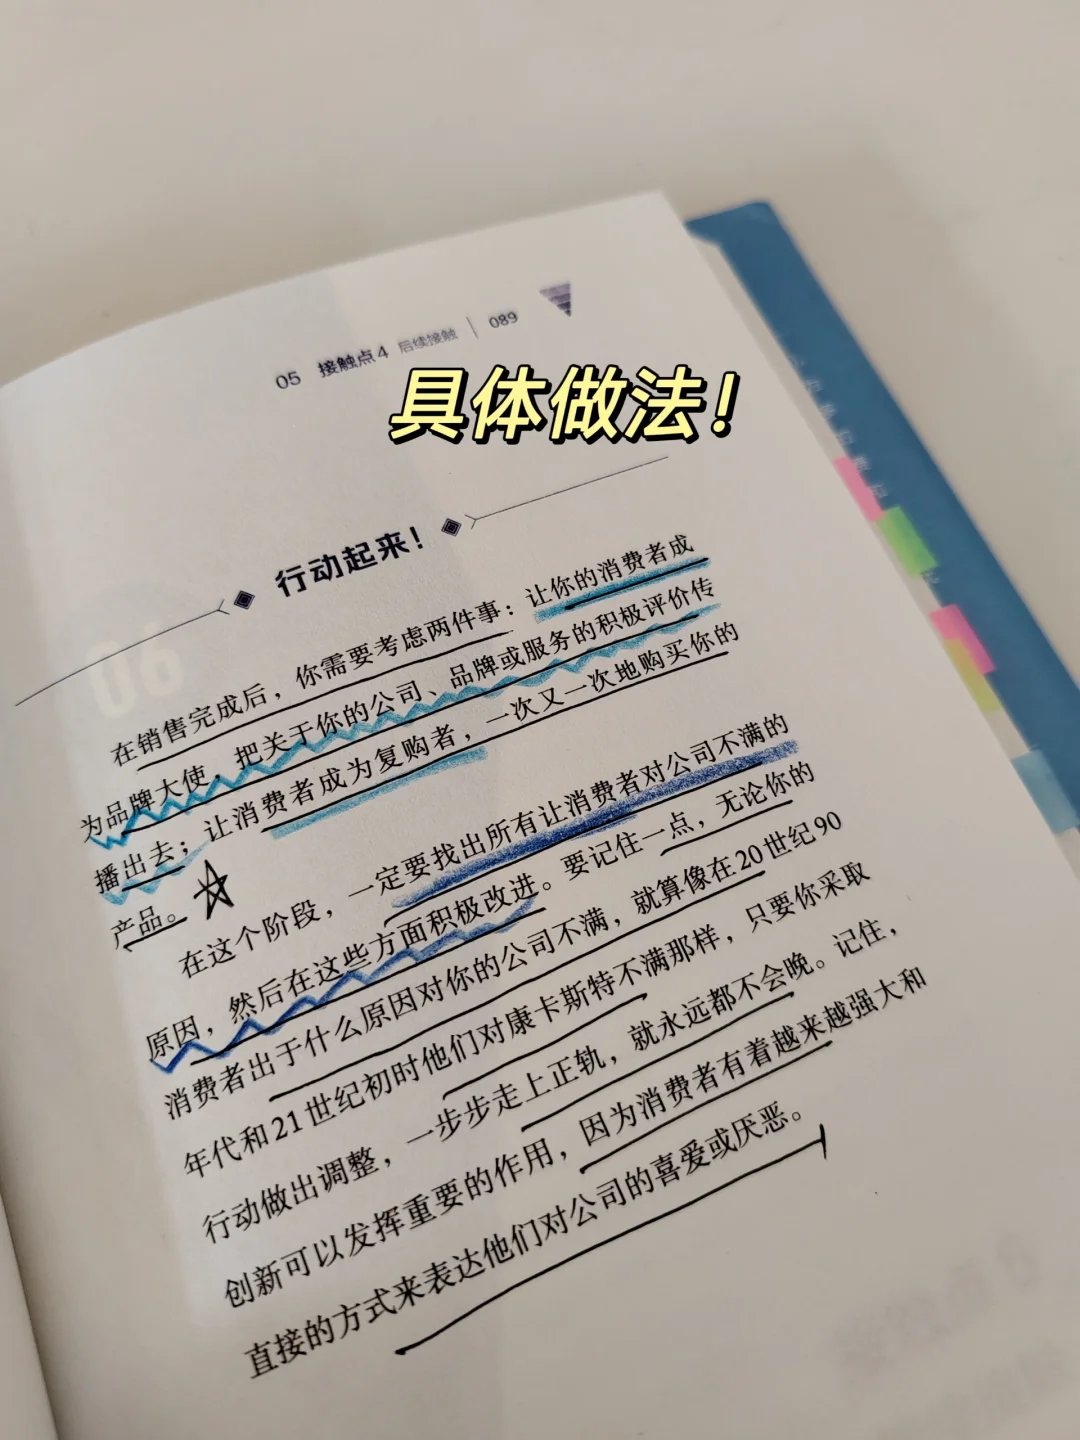 05 接触点4 后续接触 | 089
具体做法！
行动起来！
在销售完成后，你需要考虑两件事：让你的消费者成
为品牌大使，把关于你的公司、品牌或服务的积极评价传
播出去；让消费者成为复购者，一次又一次地购买你的
产品。
在这个阶段，一定要找出所有让消费者对公司不满的
原因，然后在这些方面积极改进。要记住一点，无论你的
消费者出于什么原因对你的公司不满，就算像在20世纪90
年代和21世纪初时他们对康卡斯特不满那样，只要你采取
行动做出调整，一步步走上正轨，就永远都不会晚。记住，
创新可以发挥重要的作用，因为消费者有着越来越强大和
直接的方式来表达他们对公司的喜爱或厌恶。
06